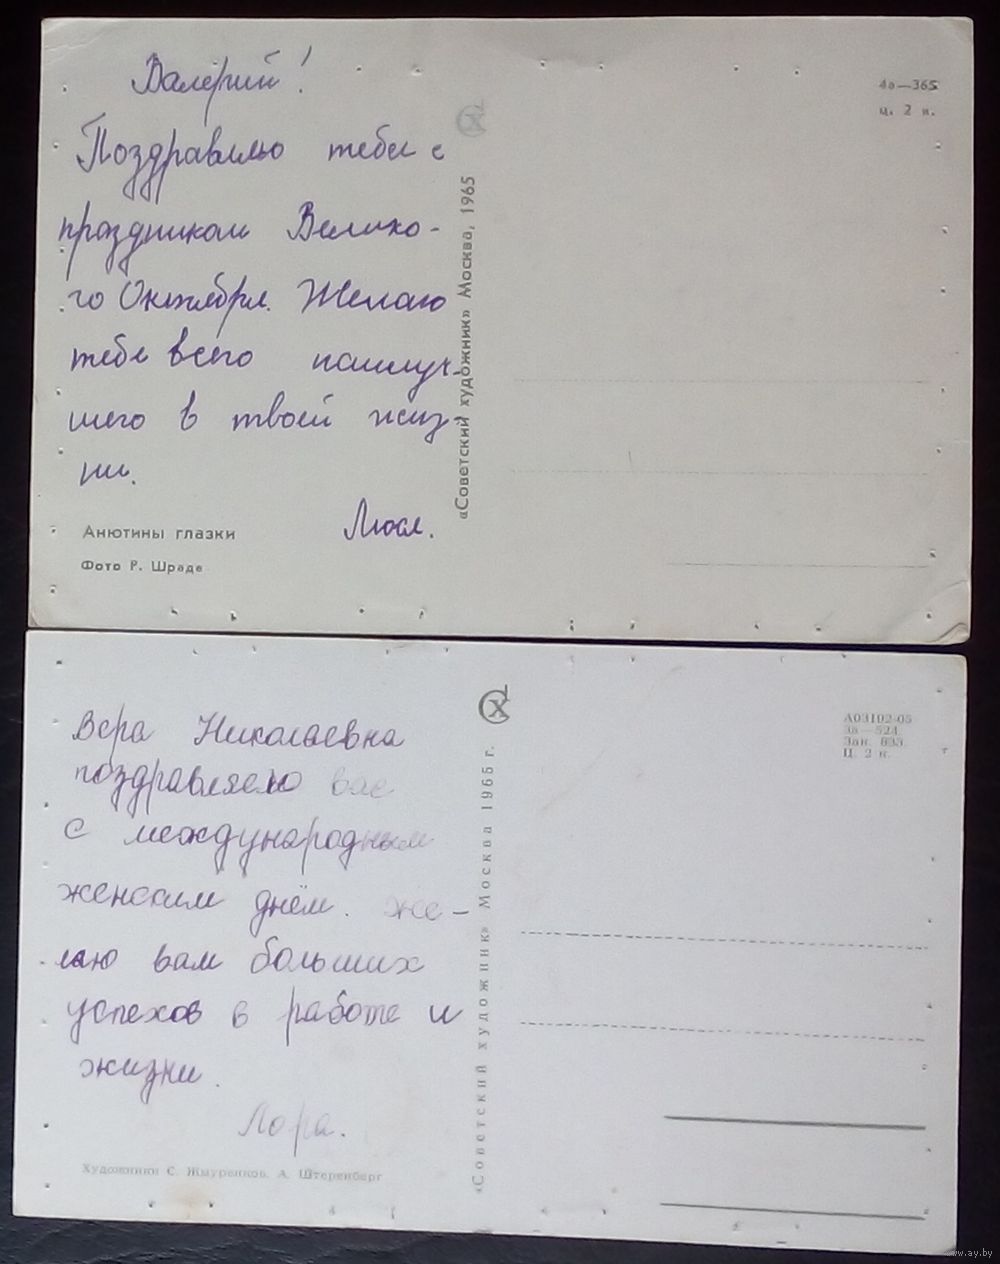 Валерий!
Поздравляю тебя с
праздником Велико-
го Октября. Желаю
тебе всего наилуч-
шего в твоей жиз
ни.
Люся.
Анютины глазки
Фото Р. Шраде
«Советский художник» Москва, 1965
4а—365
ц. 2 к.
Вера Николаевна
поздравляю вас
с международным
женским днём. Же-
лаю вам больших
успехов в работе и
жизни.
Лора.
Художники С. Жмуренков, А. Штеренберг
«Советский художник» Москва 1965 г.
А03102-05
3а—524.
Зак. 833.
Ц. 2 к.
www.ay.by